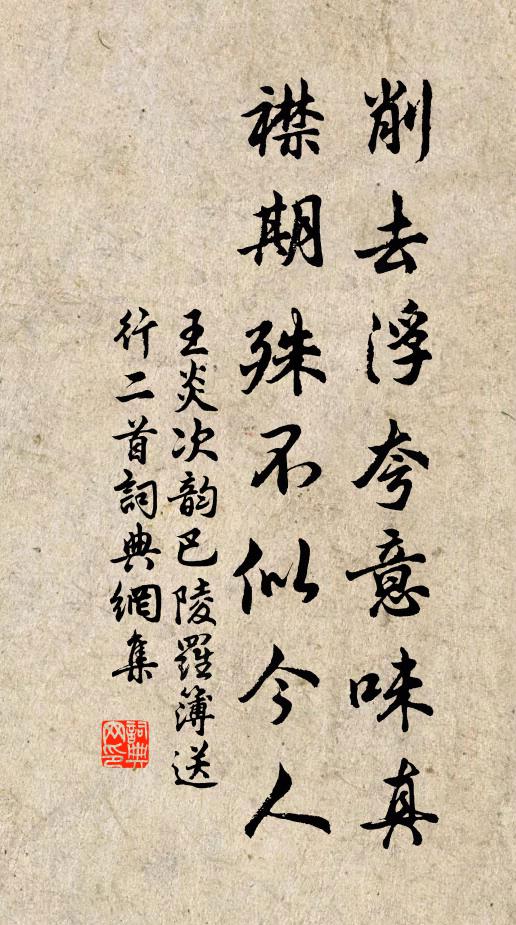 削去浮夸意味真
襟期殊不似今人
王炎次韵巴陵羅簿送
行二首詞典網集
詞典